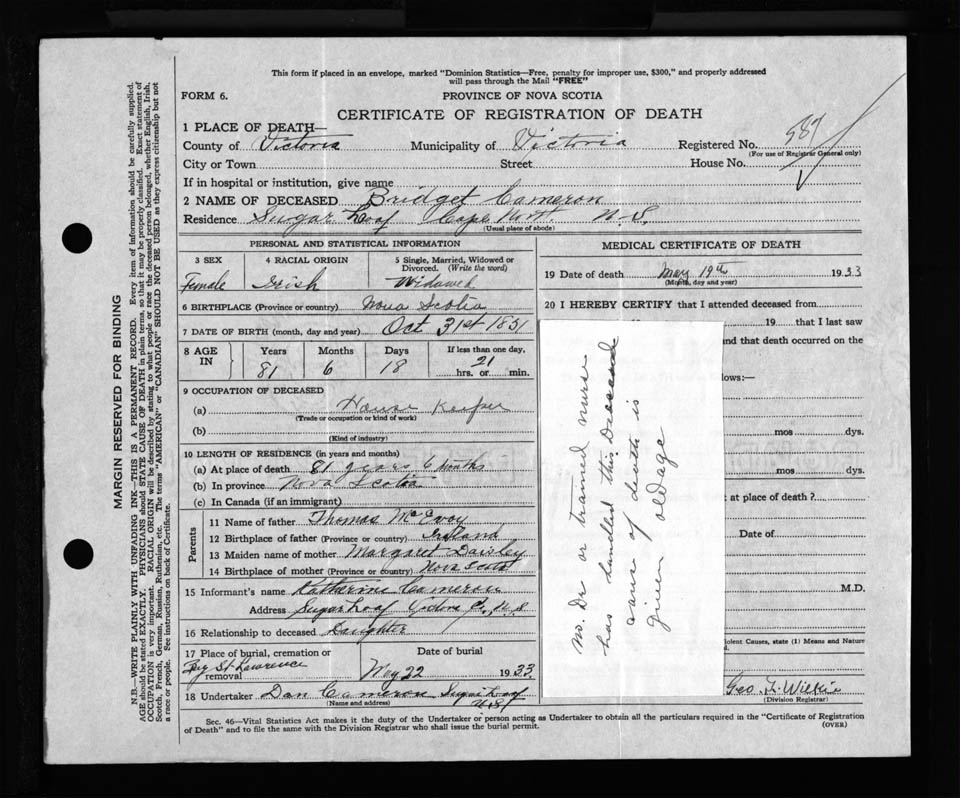 This form if placed in an envelope, marked "Dominion Statistics—Free, penalty for improper use, $300," and properly addressed
will pass through the Mail "FREE"
FORM 6.
PROVINCE OF NOVA SCOTIA
CERTIFICATE OF REGISTRATION OF DEATH
1 PLACE OF DEATH—
County of Victoria Municipality of Victoria Registered No. 587
(For use of Registrar General only)
City or Town Street House No.
If in hospital or institution, give name
2 NAME OF DECEASED Bridget Cameron
Residence Sugar Loaf Cape North N.S.
(Usual place of abode)
PERSONAL AND STATISTICAL INFORMATION
3 SEX 4 RACIAL ORIGIN 5 Single, Married, Widowed or
Divorced. (Write the word)
Female Irish Widawed
6 BIRTHPLACE (Province or country) Nova Scotia
7 DATE OF BIRTH (month, day and year) Oct 31st 1851
8 AGE IN Years Months Days If less than one day,
81 6 18 hrs. or 21 min.
9 OCCUPATION OF DECEASED
(a) House Keeper
(Trade or occupation or kind of work)
(b)
(Kind of industry)
10 LENGTH OF RESIDENCE (in years and months)
(a) At place of death 81 years 6 Months
(b) In province Nova Scotia
(c) In Canada (if an immigrant)
Parents
11 Name of father Thomas McEvoy
12 Birthplace of father (Province or country) Ireland
13 Maiden name of mother Margaret Daisley
14 Birthplace of mother (Province or country) Nova Scotia
15 Informant's name Katherine Cameron
Address Sugar Loaf N.S.
16 Relationship to deceased Daughter
17 Place of burial, cremation or Date of burial
removal Bay St Lawrence May 22 1933
18 Undertaker Dan Cameron Sugar Loaf
(Name and address) N.S.
MEDICAL CERTIFICATE OF DEATH
19 Date of death May 19th 1933
(Month, day and year)
20 I HEREBY CERTIFY that I attended deceased from
19 that I last saw
and that death occurred on the
lows:—
mos dys.
mos dys.
at place of death?
Date of
M.D.
iolent Causes, state (1) Means and Nature
Geo. Wilkie
(Division Registrar)
no Dr or trained nurse
has handled this Deceased
cause of death is
given old age
Sec. 46—Vital Statistics Act makes it the duty of the Undertaker or person acting as Undertaker to obtain all the particulars required in the "Certificate of Registration
of Death" and to file the same with the Division Registrar who shall issue the burial permit.
(OVER)
MARGIN RESERVED FOR BINDING
N.B.—WRITE PLAINLY WITH UNFADING INK—THIS IS A PERMANENT RECORD. Every item of information should be carefully supplied.
AGE should be stated EXACTLY. PHYSICIANS should STATE CAUSE OF DEATH in plain terms, so that it may be properly classified. Exact statement of
OCCUPATION is very important. RACIAL ORIGIN will be described by stating to what people or race the deceased person belonged, whether English, Irish,
Scotch, French, German, Russian, Ruthenian, etc. The terms "AMERICAN" or "CANADIAN" SHOULD NOT BE USED as they express citizenship but not
a race or people. See instructions on back of Certificate.